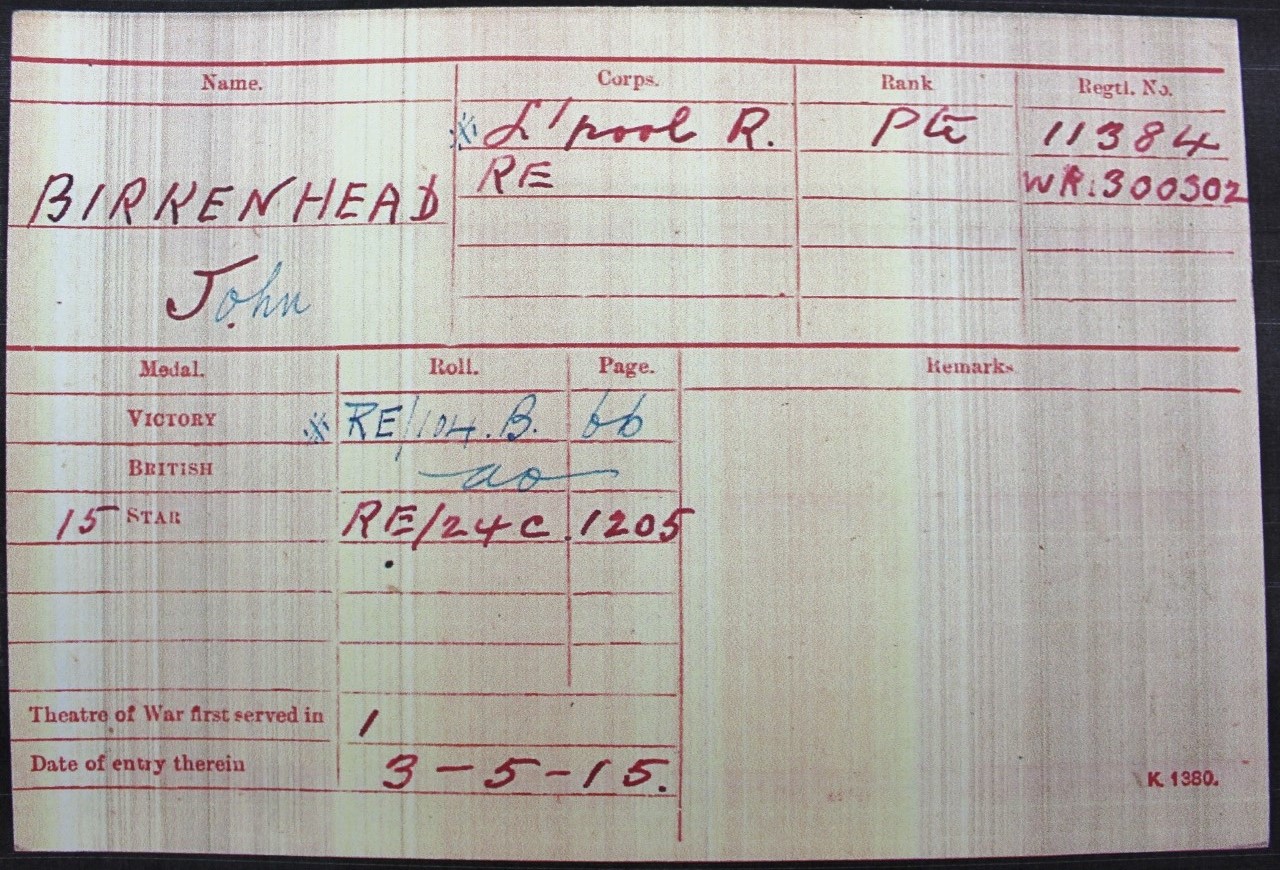 Name. Corps. Rank Regtl. No.
L'pool R. Pte 11384
BIRKENHEAD RE WR:300302
John
Medal. Roll. Page. Remarks
VICTORY RE/104.B. 66
BRITISH do
15 STAR RE/24C. 1205
Theatre of War first served in 1
Date of entry therein 3-5-15.
K. 1380.